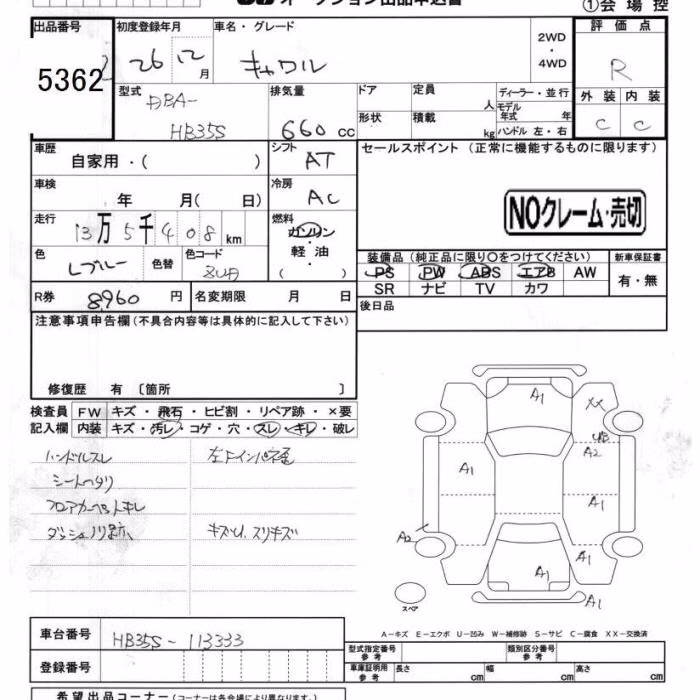 オークション出品申込書 ①会場控
出品番号 初度登録年月 車名・グレード 2WD・4WD 評価点
5362 26 12月 キャロル R
型式 DBA-HB35S 排気量 660cc ドア 定員 人 ディーラー・並行
形状 積載 kg モデル年式 年 ハンドル 左・右
外装 内装
C C
車歴 自家用・( ) シフト AT セールスポイント (正常に機能するものに限ります)
車検 年 月( 日) 冷房 AC
NOクレーム・売切
走行 13万5千408km 燃料 ガソリン
軽油
( )
色 Lブルー 色替 色コード ZUA
装備品 (純正品に限り○をつけてください) 新車保証書
PS PW ABS エアB AW 有・無
SR ナビ TV カワ
R券 8960円 名変期限 月 日 後日品
注意事項申告欄 (不具合内容等は具体的に記入して下さい)
修復歴 有 〔箇所 〕
検査員 FW キズ・飛石・ヒビ割・リペア跡・×要
記入欄 内装 キズ・汚レ・コゲ・穴・スレ・キレ・破レ
ハンドルスレ
シートヘタリ
フロアカーペットキレ
ダッシュノリ跡 キズU.スリキズ
A1 XX
A2
A1
A1
A2
A1
A1
A1
スペア
A-キズ E-エクボ U-凹み W-補修跡 S-サビ C-腐食 XX-交換済
車台番号 HB35S-113333
登録番号
型式指定番号 参考 類別区分番号 参考
車庫証明用 参考 長さ cm 幅 cm 高さ cm
希望出品コーナー (コーナーは各会場により異なります)